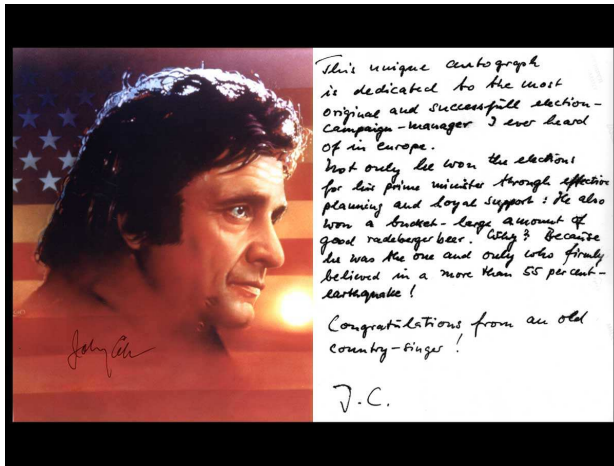 This unique autograph
is dedicated to the most
original and successfull election-
campaign-manager I ever heard
of in europe.
Not only he won the elections
for his prime minister through effective
planning and loyal support: He also
won a bucket-large amount of
good radeberger beer. Why? Because
he was the one and only who firmly
believed in a more than 55 percent-
earthquake!
Congratulations from an old
country-singer!
J.C.